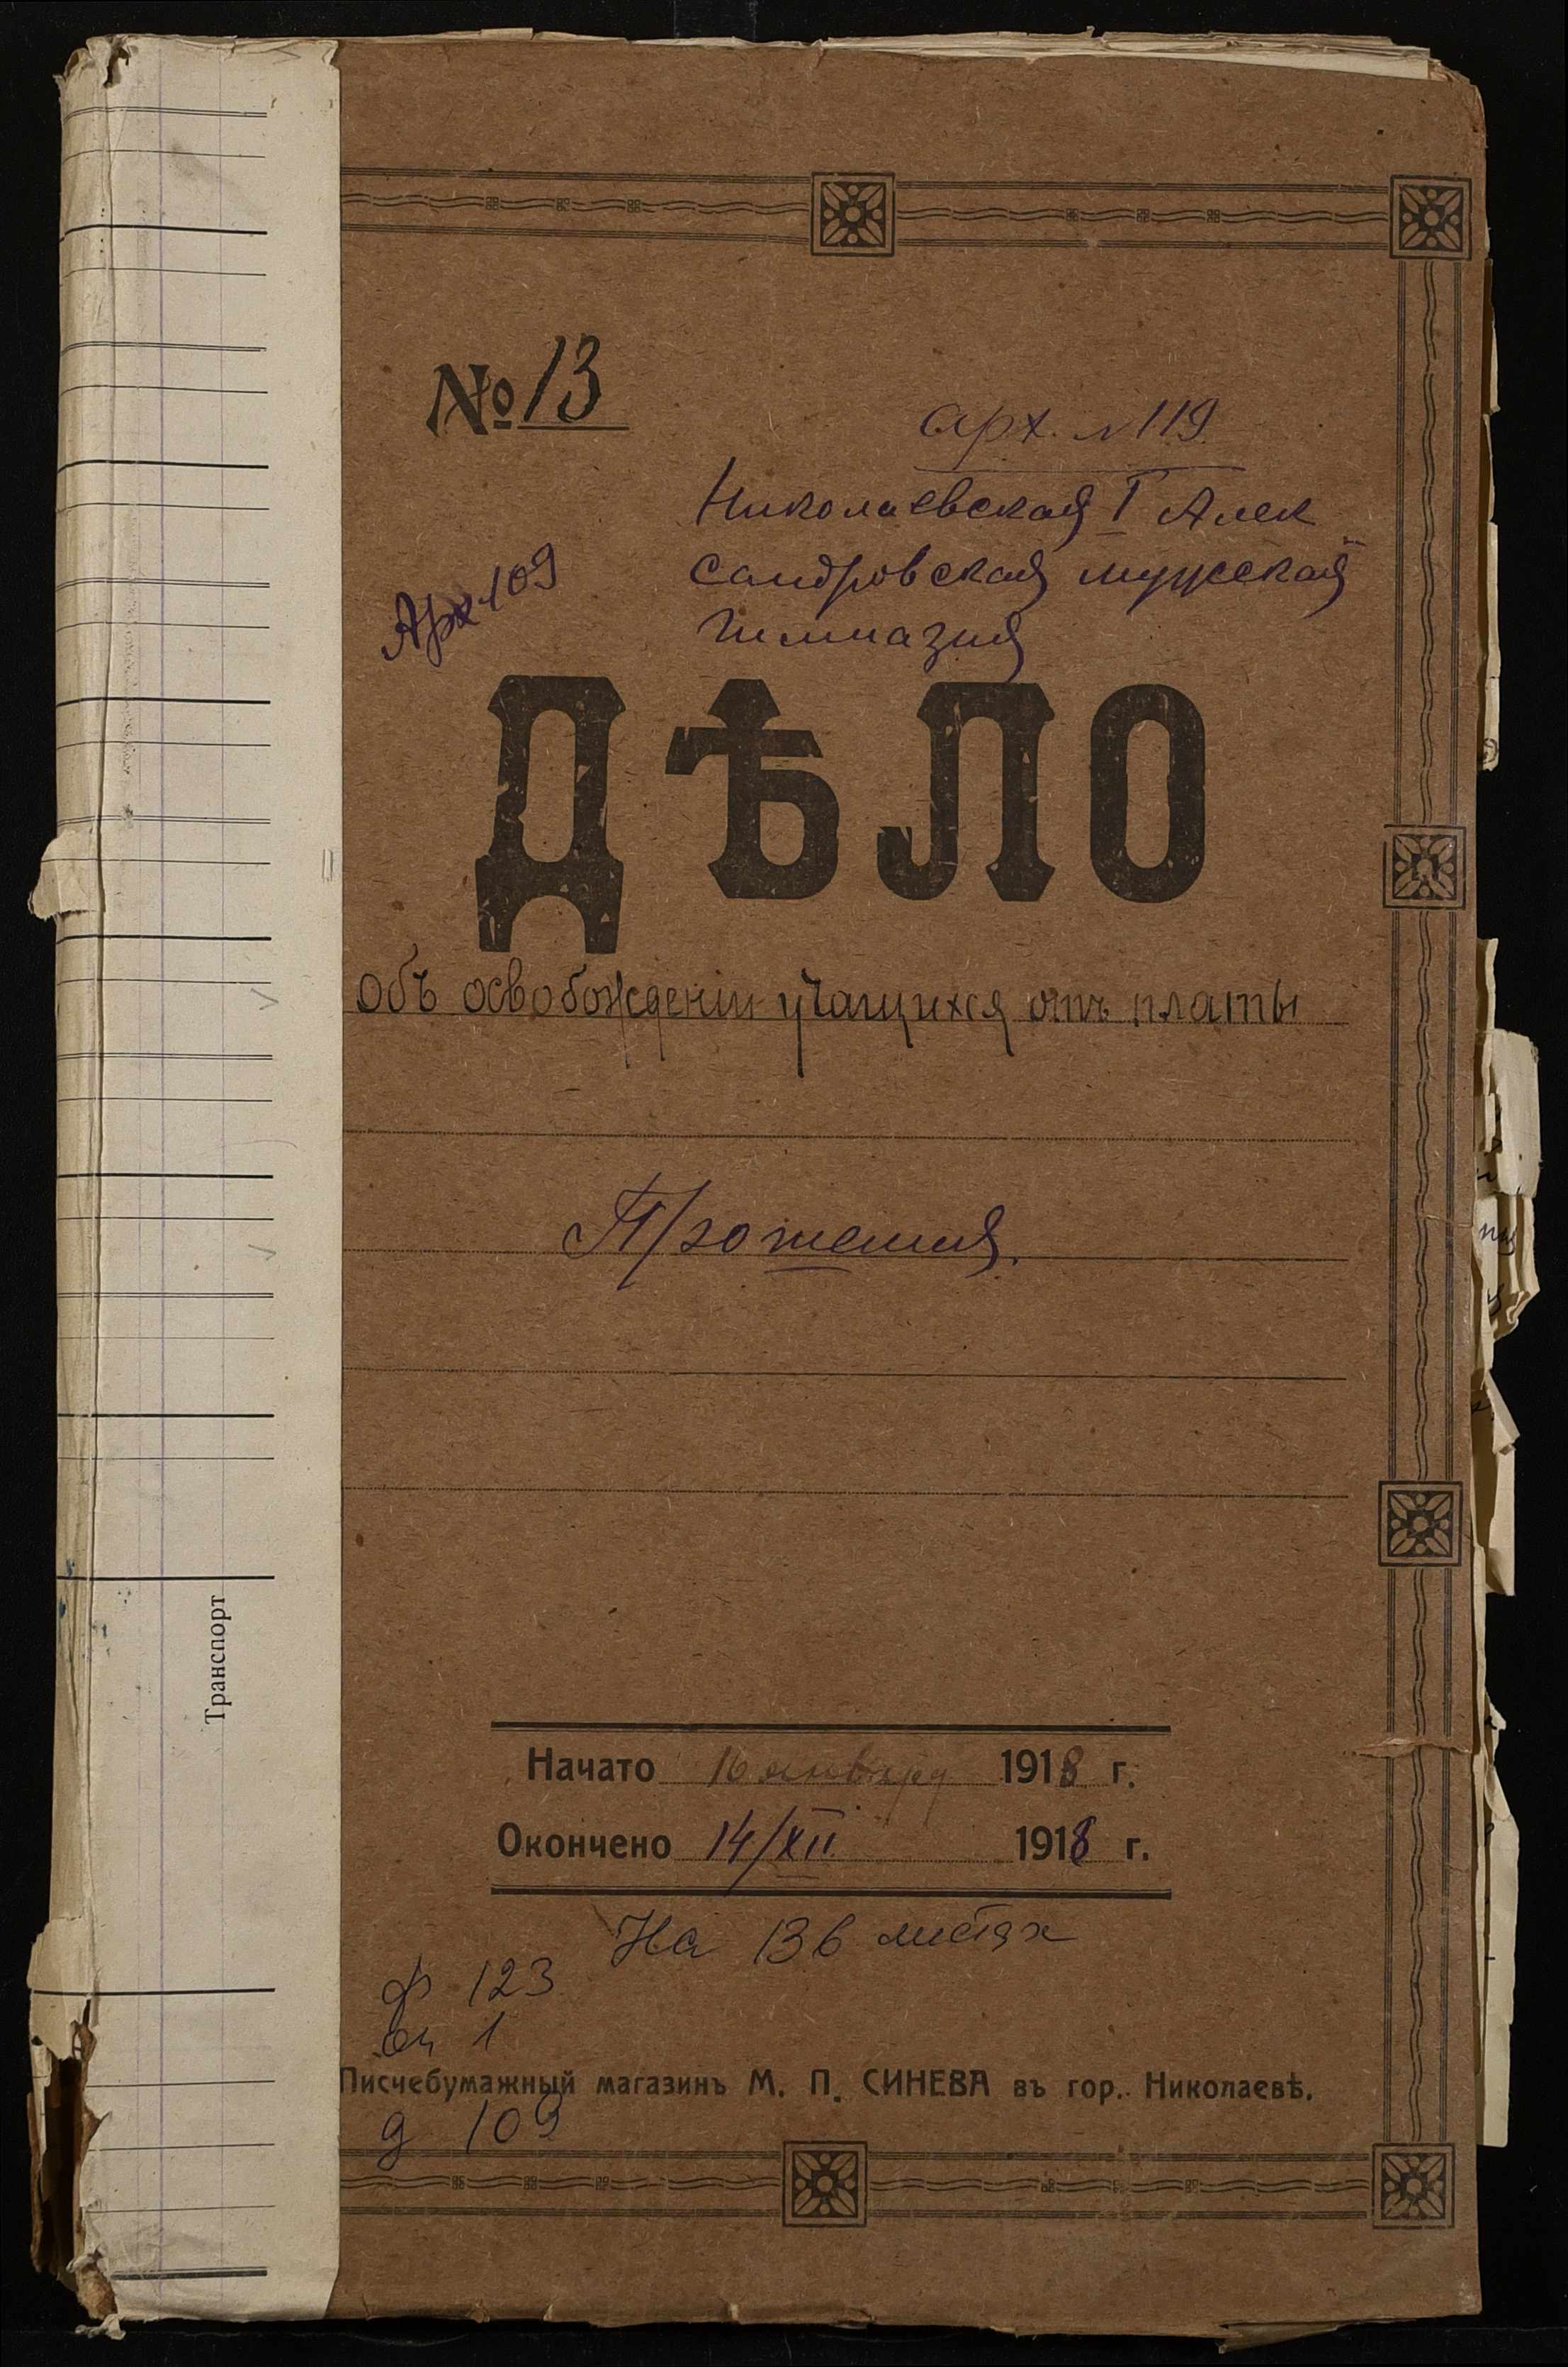 № 13
арх. № 119
Николаевская I Алек
сандровская мужская
гимназия
Арх 109
ДѢЛО
объ освобожденіи учащихся отъ платы
Прошения.
Начато 16 января 1918 г.
Окончено 14/XII 1918 г.
На 136 листах
ф 123
оп 1
Писчебумажный магазинъ М. П. СИНЕВА въ гор. Николаевѣ.
д 109
Транспорт